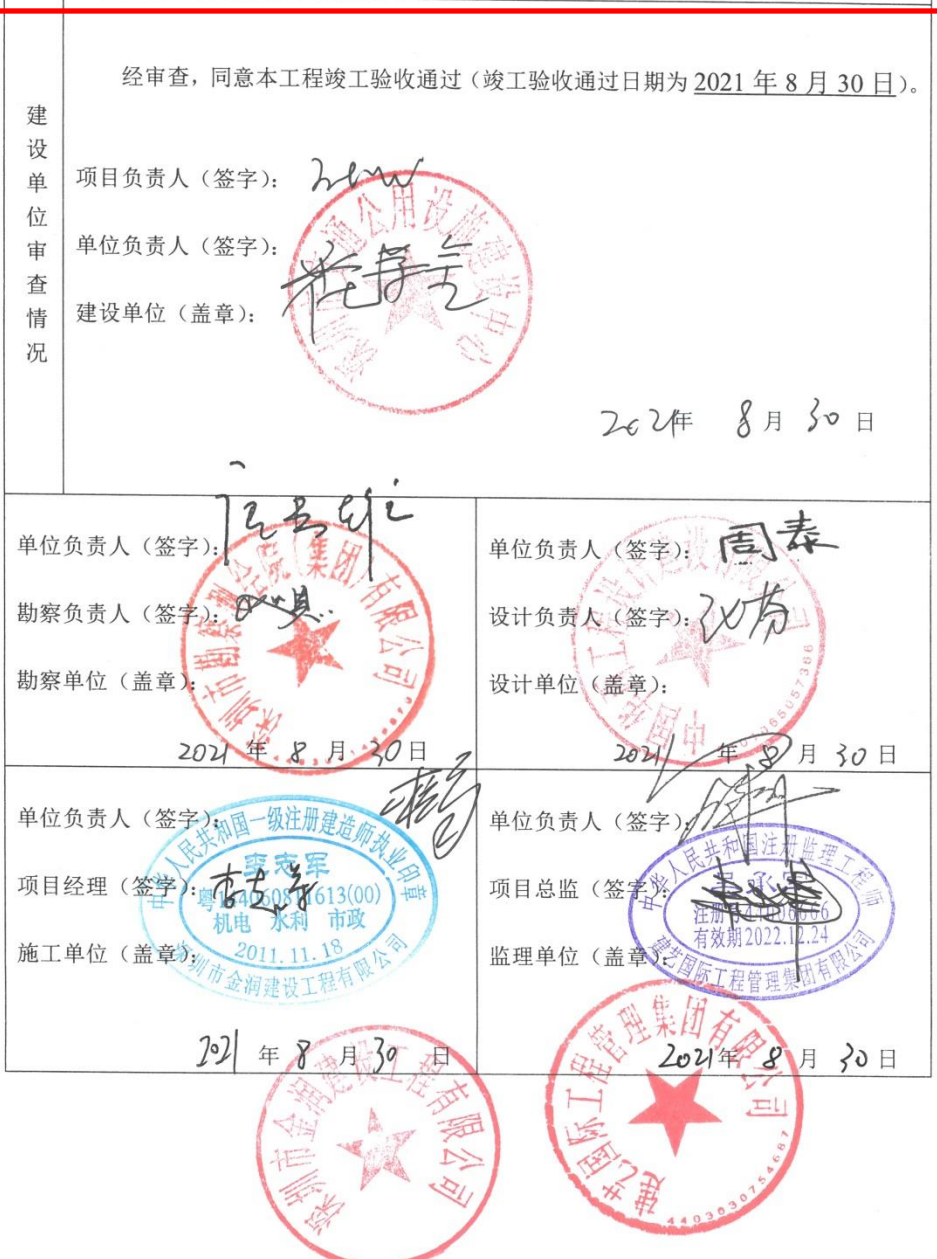 建设单位审查情况
经审查，同意本工程竣工验收通过（竣工验收通过日期为 2021 年 8 月 30 日）。
项目负责人（签字）：
单位负责人（签字）：
建设单位（盖章）：
通公用设施建设中心
2021年 8月 30日
单位负责人（签字）：
勘察负责人（签字）：
勘察单位（盖章）：
深圳市勘察测绘院（集团）有限公司
2021 年 8 月 30日
单位负责人（签字）：周泰
设计负责人（签字）：
设计单位（盖章）：
2021 年 8 月 30 日
单位负责人（签字）：
项目经理（签字）：李志军
施工单位（盖章）：
中华人民共和国一级注册建造师执业印章
李志军
机电 水利 市政
2011.11.18
深圳市金润建设工程有限公司
2021 年 8 月 30 日
单位负责人（签字）：
项目总监（签字）：
监理单位（盖章）：
中华人民共和国注册监理工程师
注册号
有效期2022.12.24
建艺国际工程管理集团有限公司
2021年 8 月 30 日
深圳市金润建设工程有限公司
建艺国际工程管理集团有限公司
4403030754687